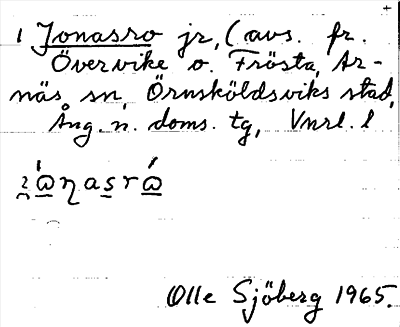 1 Jonasro jr, (avs. fr.
Övervike o. Frösta, Ar-
näs sn, Örnsköldsviks stad,
Ång. n. doms. tg, Vnrl. l
Olle Sjöberg 1965.